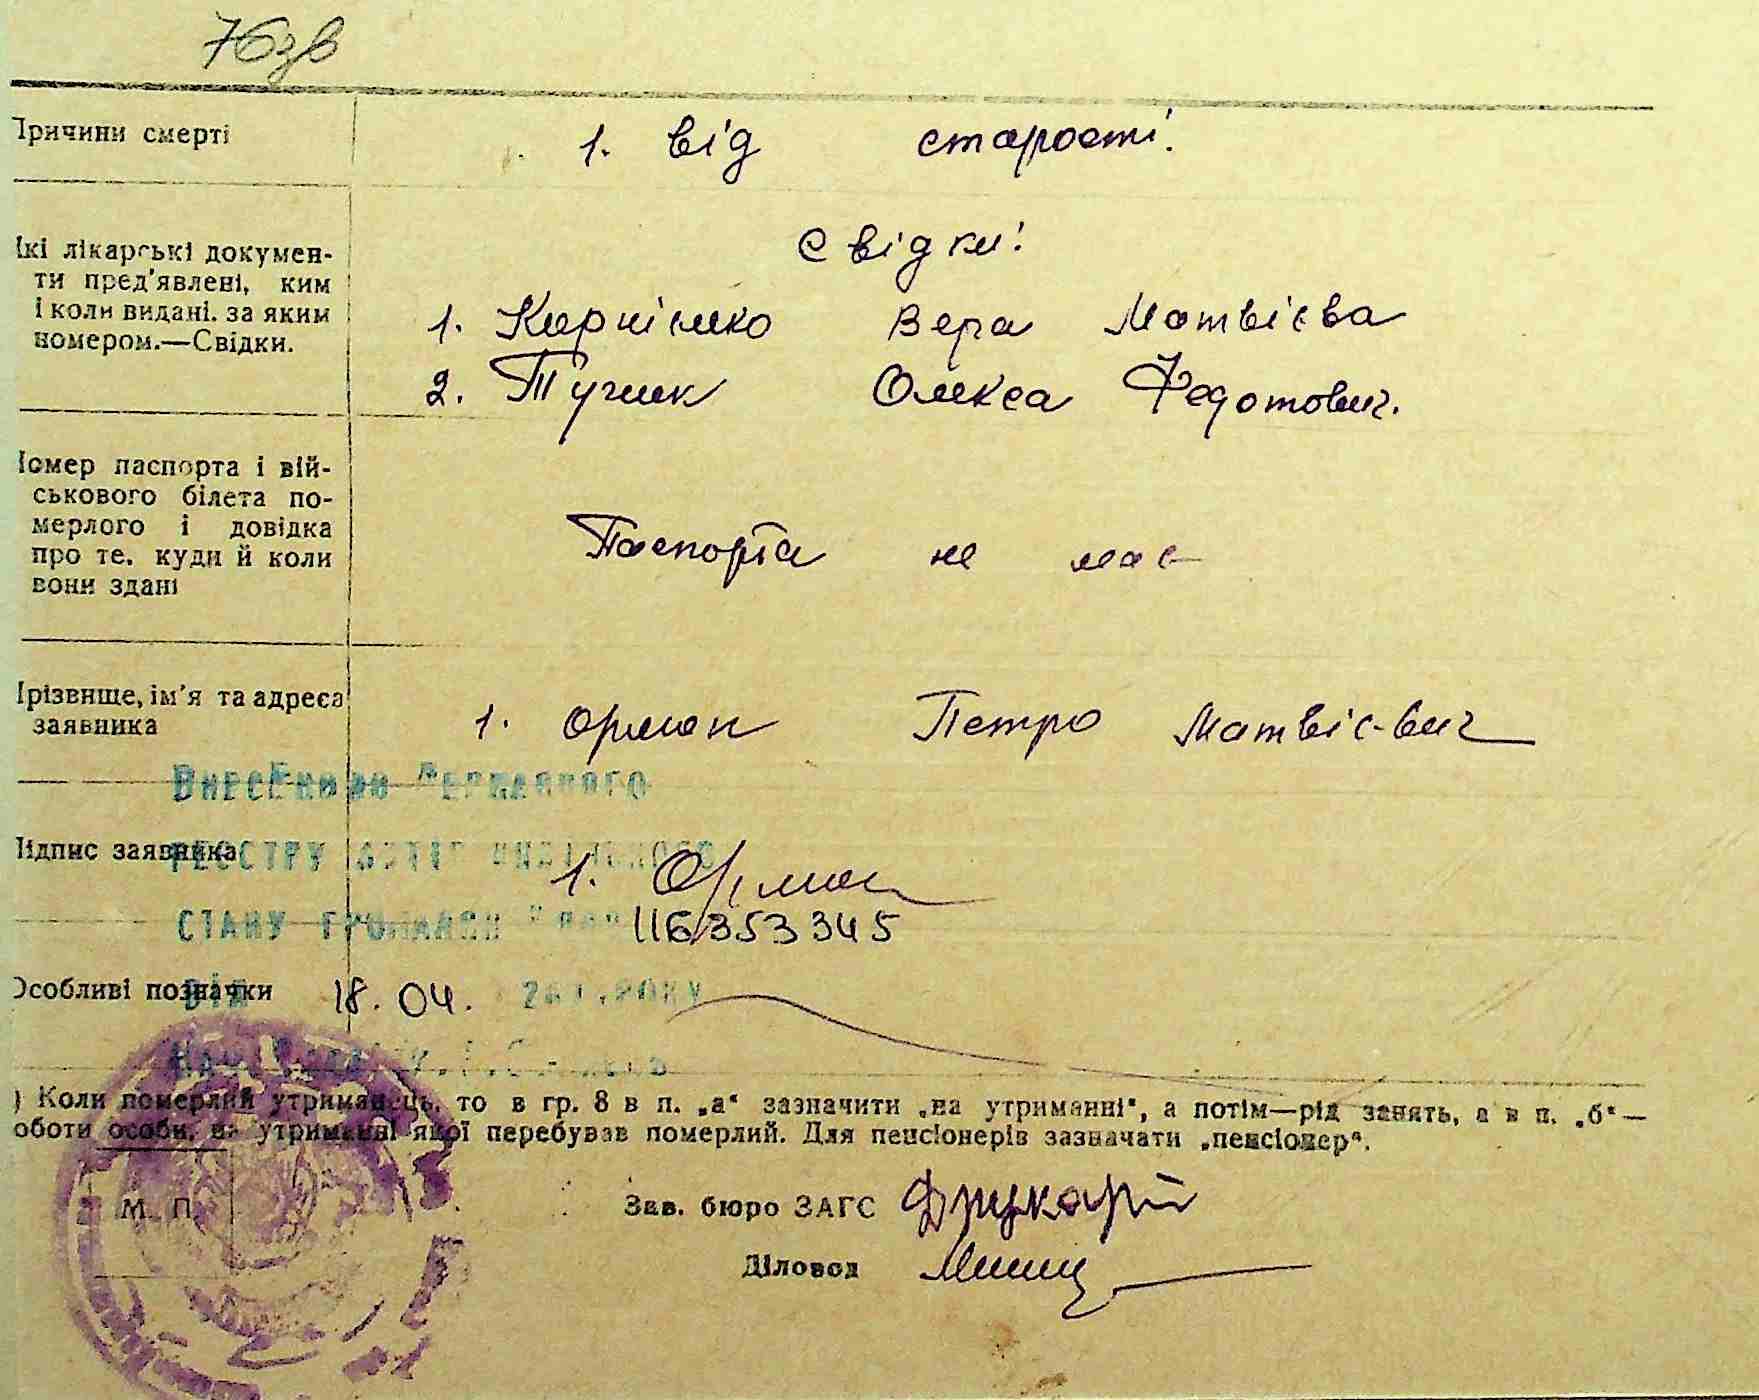 76зв
Причини смерті
1. від старості.
Які лікарські докумен-
ти пред'явлені, ким
і коли видані. за яким
номером.—Свідки.
Свідки:
1. Корнієнко Вера Матвієва
2. Тучик Олекса Федотович.
Номер паспорта і вій-
ськового білета по-
мерлого і довідка
про те, куди й коли
вони здані
Паспорта не має
Прізвище, ім'я та адреса
заявника
1. Орман Петро Матвієвич
Внесено до Державного
Підпис заявника
реєстру актів цивільного
1. Орман
стану громадян
116353345
Особливі позначки
від 18.04. року
) Коли померлий утриманець, то в гр. 8 в п. „а“ зазначити „на утриманні“, а потім—рід занять, а в п. „б“—
оботи особи, на утриманні якої перебував померлий. Для пенсіонерів зазначати „пенсіонер“.
М. П.
Зав. бюро ЗАГС
Діловод